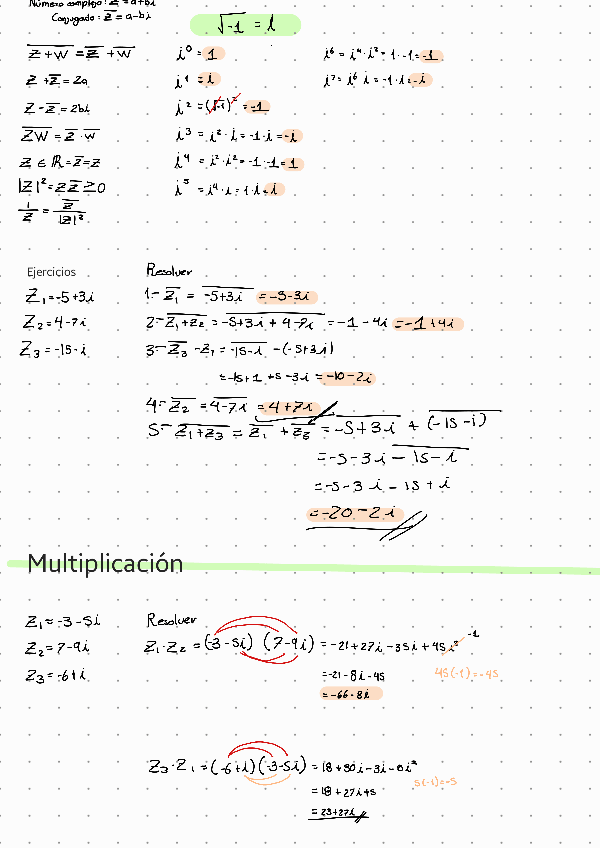 Número complejo: z = a+bi
Conjugado: z̅ = a-bi
√-1 = i
\overline{z+w} = z̅ + w̅
z + z̅ = 2a
z - z̅ = 2bi
\overline{zw} = z̅ · w̅
z ∈ ℝ = z̅ = z
|z|² = z z̅ ≥ 0
1/z = z̅/|z|²
i⁰ = 1
i¹ = i
i² = (√-1)² = -1
i³ = i² · i = -1 · i = -i
i⁴ = i² · i² = -1 · -1 = 1
i⁵ = i⁴ · i = 1 · i = i
i⁶ = i⁴ · i² = 1 · -1 = -1
i⁷ = i⁶ · i = -1 · i = -i
Ejercicios
Z₁ = -5+3i
Z₂ = 4-7i
Z₃ = -15-i
Resolver
1- \overline{Z₁} = \overline{-5+3i} = -5-3i
2- \overline{Z₁+Z₂} = \overline{-5+3i + 4-7i} = \overline{-1-4i} = -1+4i
3- \overline{Z₃} - Z₁ = \overline{-15-i} - (-5+3i)
= -15+i +5-3i = -10-2i
4- \overline{Z₂} = \overline{4-7i} = 4+7i
5- \overline{Z₁+Z₃} = \overline{Z₁} + \overline{Z₃} = \overline{-5+3i} + \overline{(-15-i)}
= -5-3i \overline{-15-i}
= -5-3i -15+i
= -20-2i
Multiplicación
Z₁ = -3-5i
Z₂ = 7-9i
Z₃ = -6+i
Resolver
Z₁·Z₂ = (-3-5i) (7-9i) = -21+27i-35i+45i² -1
= -21-8i-45
45(-1) = -45
= -66-8i
Z₃·Z₁ = (-6+i)(-3-5i) = 18+30i-3i-5i²
5(-1) = -5
= 18+27i+5
= 23+27i